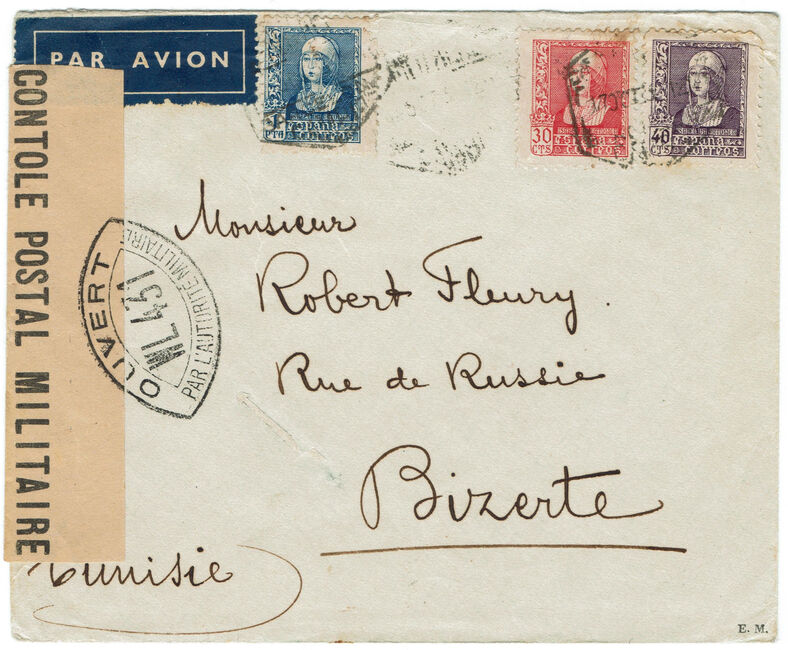 PAR AVION
PTA
España
CORREOS
30
CTS
España
CORREOS
40
CTS
España
CORREOS
CONTOLE POSTAL MILITAIRE
OUVERT
PAR L'AUTORITÉ MILITAIRE
Monsieur
Robert Fleury.
Rue de Russie
Bizerte
Tunisie
E. M.